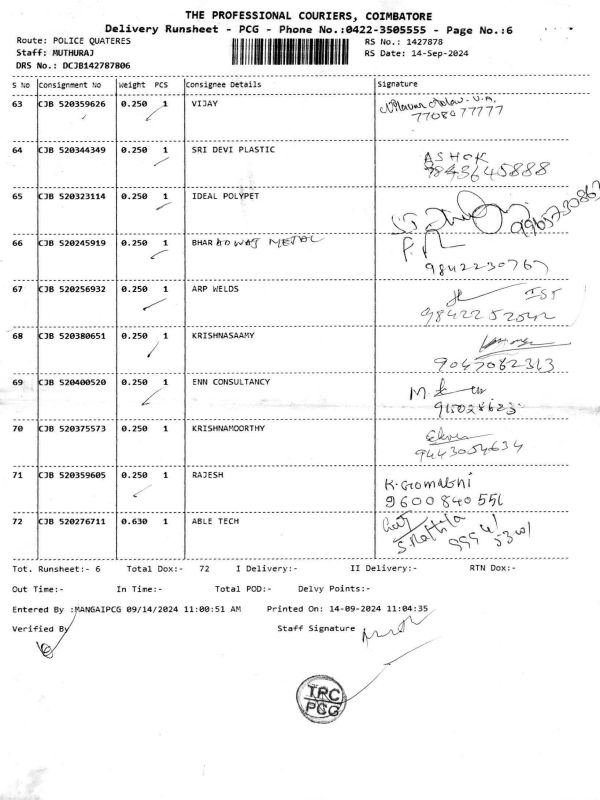 THE PROFESSIONAL COURIERS, COIMBATORE
Delivery Runsheet - PCG - Phone No.:0422-3505555 - Page No.:6
Route: POLICE QUATERES RS No.: 1427878
Staff: MUTHURAJ RS Date: 14-Sep-2024
DRS No.: DCJB142787806
S No Consignment No Weight PCS Consignee Details Signature
63 CJB 520359626 0.250 1 VIJAY
7708077777
64 CJB 520344349 0.250 1 SRI DEVI PLASTIC ASHOK
9843645888
65 CJB 520323114 0.250 1 IDEAL POLYPET
66 CJB 520245919 0.250 1 BHARADWAJ METAL
9842230767
67 CJB 520256932 0.250 1 ARP WELDS
9842252042
68 CJB 520380651 0.250 1 KRISHNASAAMY
9047082313
69 CJB 520400520 0.250 1 ENN CONSULTANCY
70 CJB 520375573 0.250 1 KRISHNAMOORTHY
9443054634
71 CJB 520359605 0.250 1 RAJESH K. Gomathi
9600840551
72 CJB 520276711 0.630 1 ABLE TECH
Tot. Runsheet:- 6 Total Dox:- 72 I Delivery:- II Delivery:- RTN Dox:-
Out Time:- In Time:- Total POD:- Delvy Points:-
Entered By :MANGAIPCG 09/14/2024 11:00:51 AM Printed On: 14-09-2024 11:04:35
Verified By Staff Signature
TRC
PCG